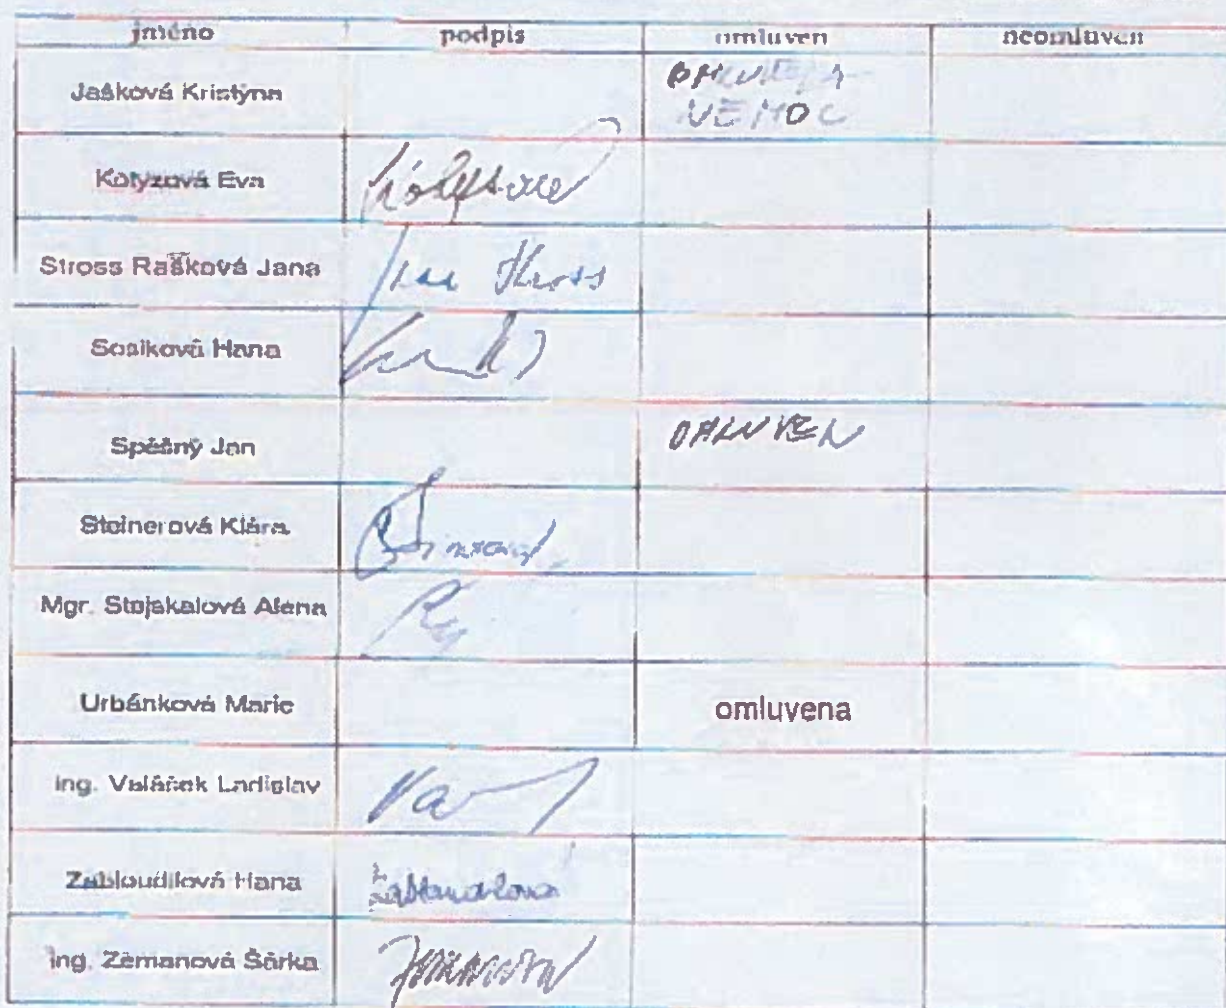 jméno podpis omluven neomluven
Jašková Kristýna OMLUVENA
NEMOC
Kotyzová Eva
Stross Rašková Jana Jana Stross
Sosíková Hana
Spěšný Jan OMLUVEN
Steinerová Klára
Mgr. Stojakalová Alena
Urbánková Marie omluvena
Ing. Valášek Ladislav
Zabloudilová Hana Zabloudilová
Ing. Zemanová Šárka